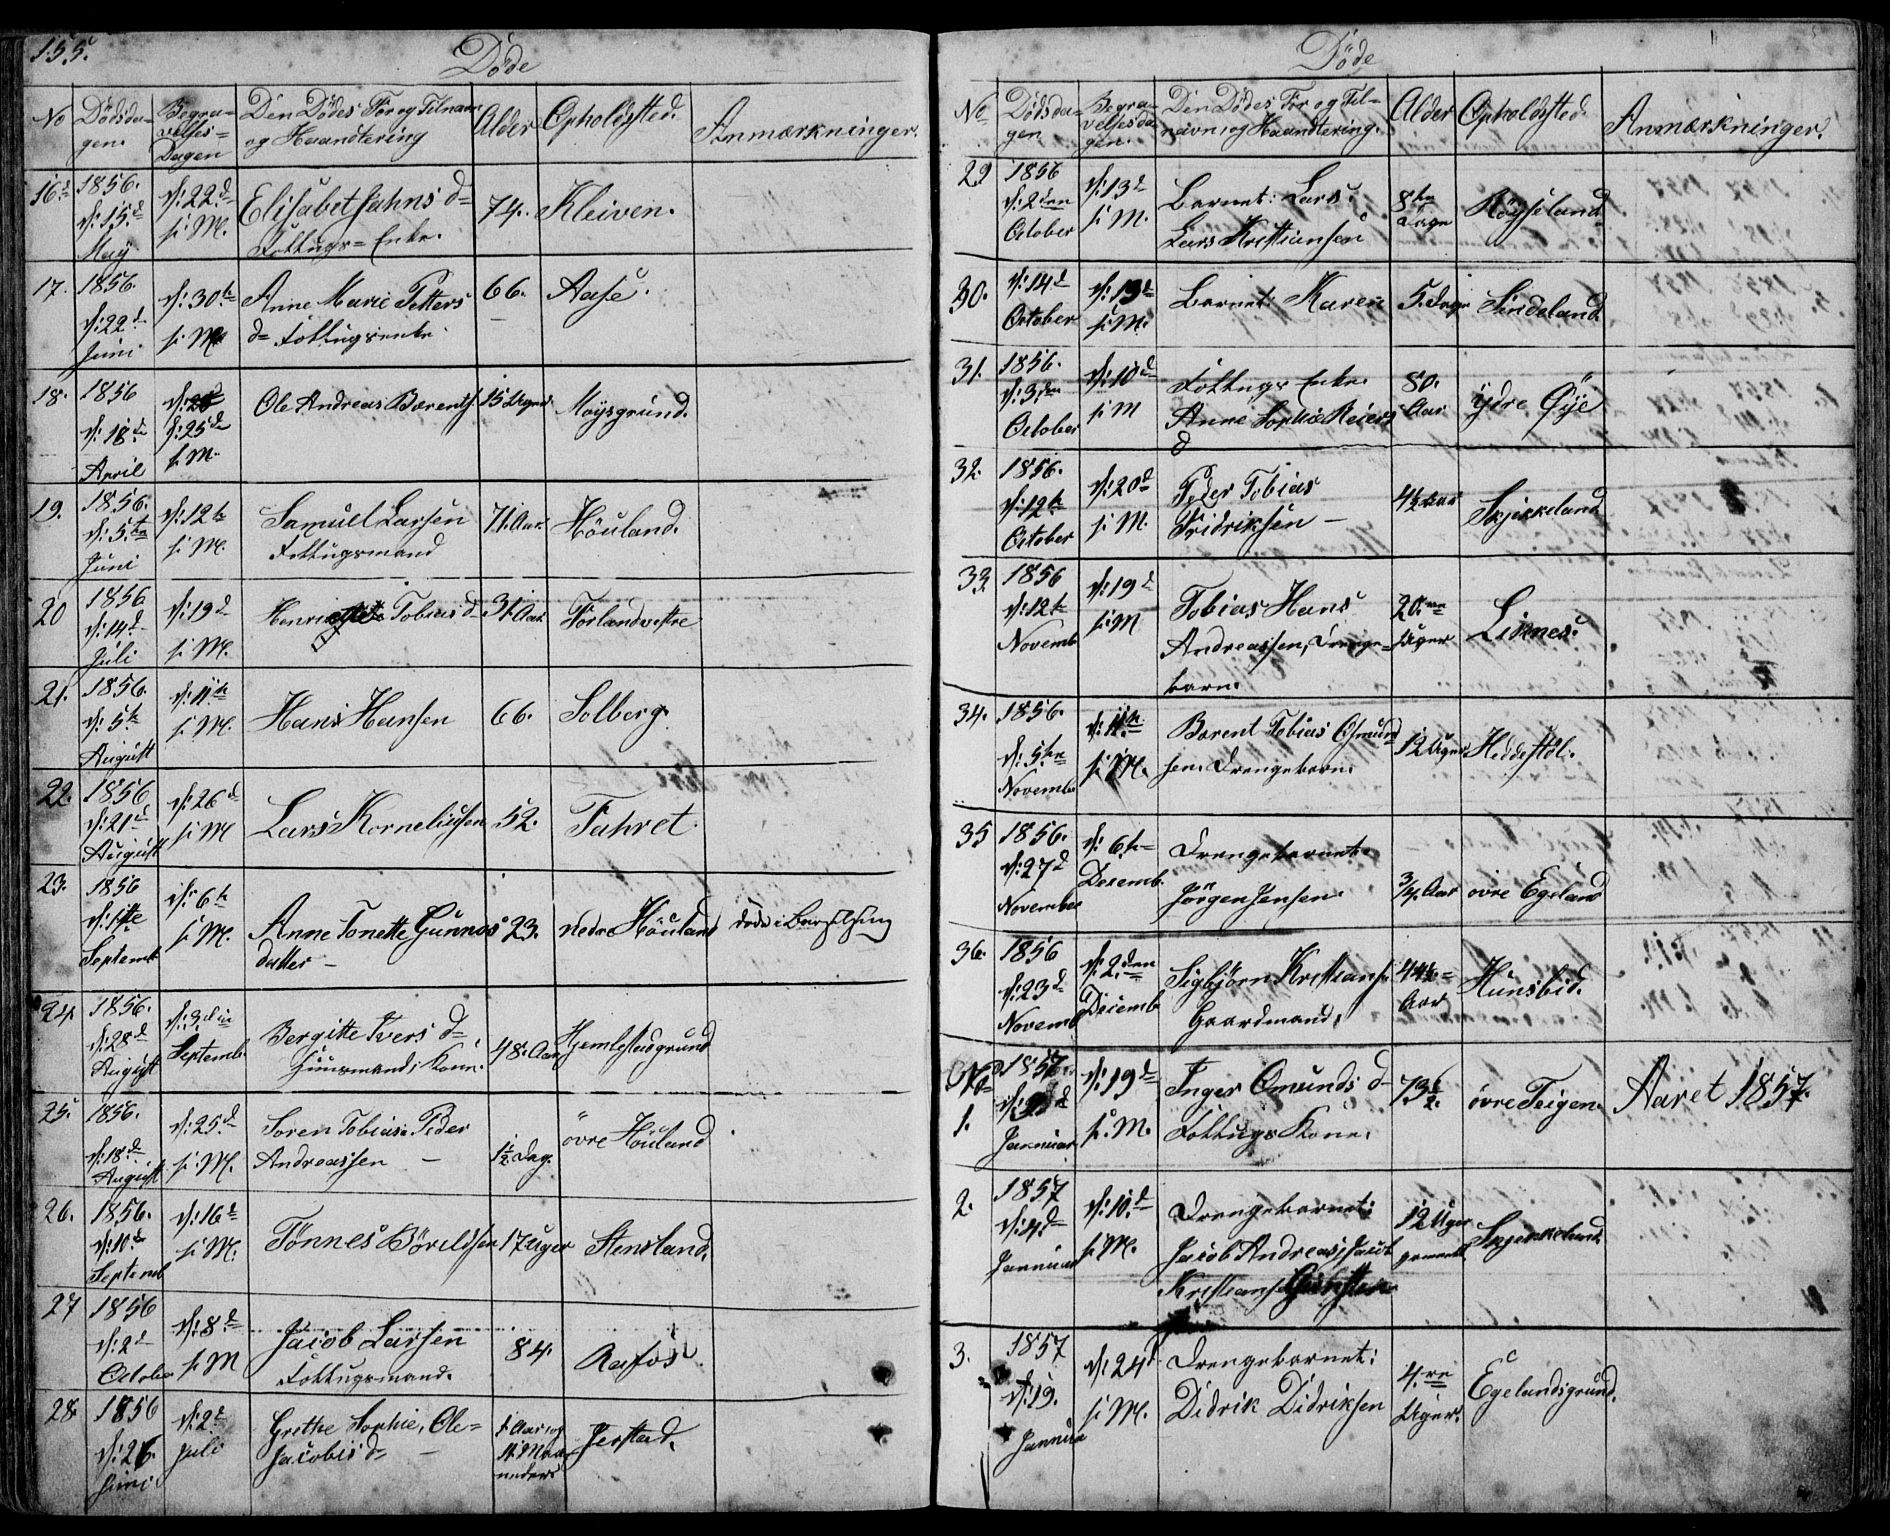 155.
Döde
No
Dödsda-
gen.
Begra-
velses-
Dagen
Den Dödes For og Tilnavn
og Haandtering
Alder
Opholdsted.
Anmærkninger.
16d 1856. d: 15d May
d: 22d s: M.
Elisabet Jahns d=
Fottugs= Enke.
74. Kleiven.
17. 1856. d: 22d Juni
d: 30te s: M.
Anne Marie Petters
d= Fottugsenke
66. Aase.
18. 1856 d: 18de April
d: 25de s: M.
Ole Andreas Barents. 15 Uger Moysgrund.
19. 1856. d: 5te Juni
d: 12te s: M.
Samuel Larsen
Fottugsmand
71. Aar. Höuland.
20 1856 d: 14d Juli
d: 19d s: M.
Henriette Tobias d= 31. Aar Förland vestre
21. 1856. d: 5te August
d: 11te s: M.
Hans Hansen 66. Solberg.
22. 1856 d: 21d August
d: 26d s: M
Lars Korneliusen 52. Fahret
23. 1856 d: 1ste Septemb
d: 6te s: M.
Anne Tonette Gunnos
datter –
23. nedre Höuland döde i Barselseng
24 1856. d: 28d August
d: 3die Septemb.
Bergitte Ivers d=
Huusmands Kone.
48. Aar Hjemlestadgrund
25. 1856. d: 18de August
d: 25d s: M.
Soren Tobias Peder
Andreassen –
1½ Dag. övre Höuland
26. 1856. d: 10de Septemb
d: 16d s: M.
Tönnes Börildsen 17 Uger Stensland.
27 1856 d: 2d Octobe
d: 8d s: M
Jacob Larsen
Fottugsmand.
84. Rafos
28. 1856 d: 26. Juni
d: 2d Juli
Grethe Sophie, Ole=
Jacobs d= –
1 Aar og
Maa-
neder
Jerstad.
Döde
No
Dödsda-
gen
Begra-
velsesda-
gen.
Den Dödes For og Til=
navn og Haandtering.
Alder
Opholdsted.
Anmærkninger.
29 1856 d: 2den October
d: 13d s: M.
Barnet: Lars.
Lars Kristiansen
8te Dage Röyseland
30. d: 14d October
d: 19d s: M.
Barnet: Karen 5. Dage Sindeland
31. 1856. d: 3die October
d: 10d s: M
Fottugs Enke.
Anne Sophie Reiers
d
80. Aar ydre Öye
32. 1856. d: 12te October
d: 20d s: M.
Peder Tobias
Fridriksen –
4½ Aar Skjekkeland
33. 1856 d: 12te Novemb
d: 19d s: M
Tobias Hans
Andreassen, Drenge=
barn.
20.ve Uger Liknes.
34. 1856. d: 5te Novembe
d: 11te s: M.
Barent Tobias Osmund
sen. Drengebarn.
12 Uger Heddestöl.
35 1856. d: 27d November
d: 6te Decemb.
Drengebarnet.
Jörgen Jensen.
¾ Aar övre Egeland
36. 1856 d: 23d Novemb
d: 2den Deiemb
Sigbjörn Kristians.
Gaardmand.
44½= Aar Hunsbid.
No 1. 1857. Januar
d: 19d s: M.
Inger Omunds d=
Fottugs Kone.
73½. övre Teigen. Aaret 1857.
2. 1857 d: 4d Januar
d: 10d s: M.
Drengebarnet:
Jacob Andreas, Jacob
Kristians.
12 Uger
Skjenkeland.
3. 1857 d: 19. Janua
d: 24d s: M.
Drengebarnet:
Didrik Didriksen
4.re Uger. Egelandsgrund.